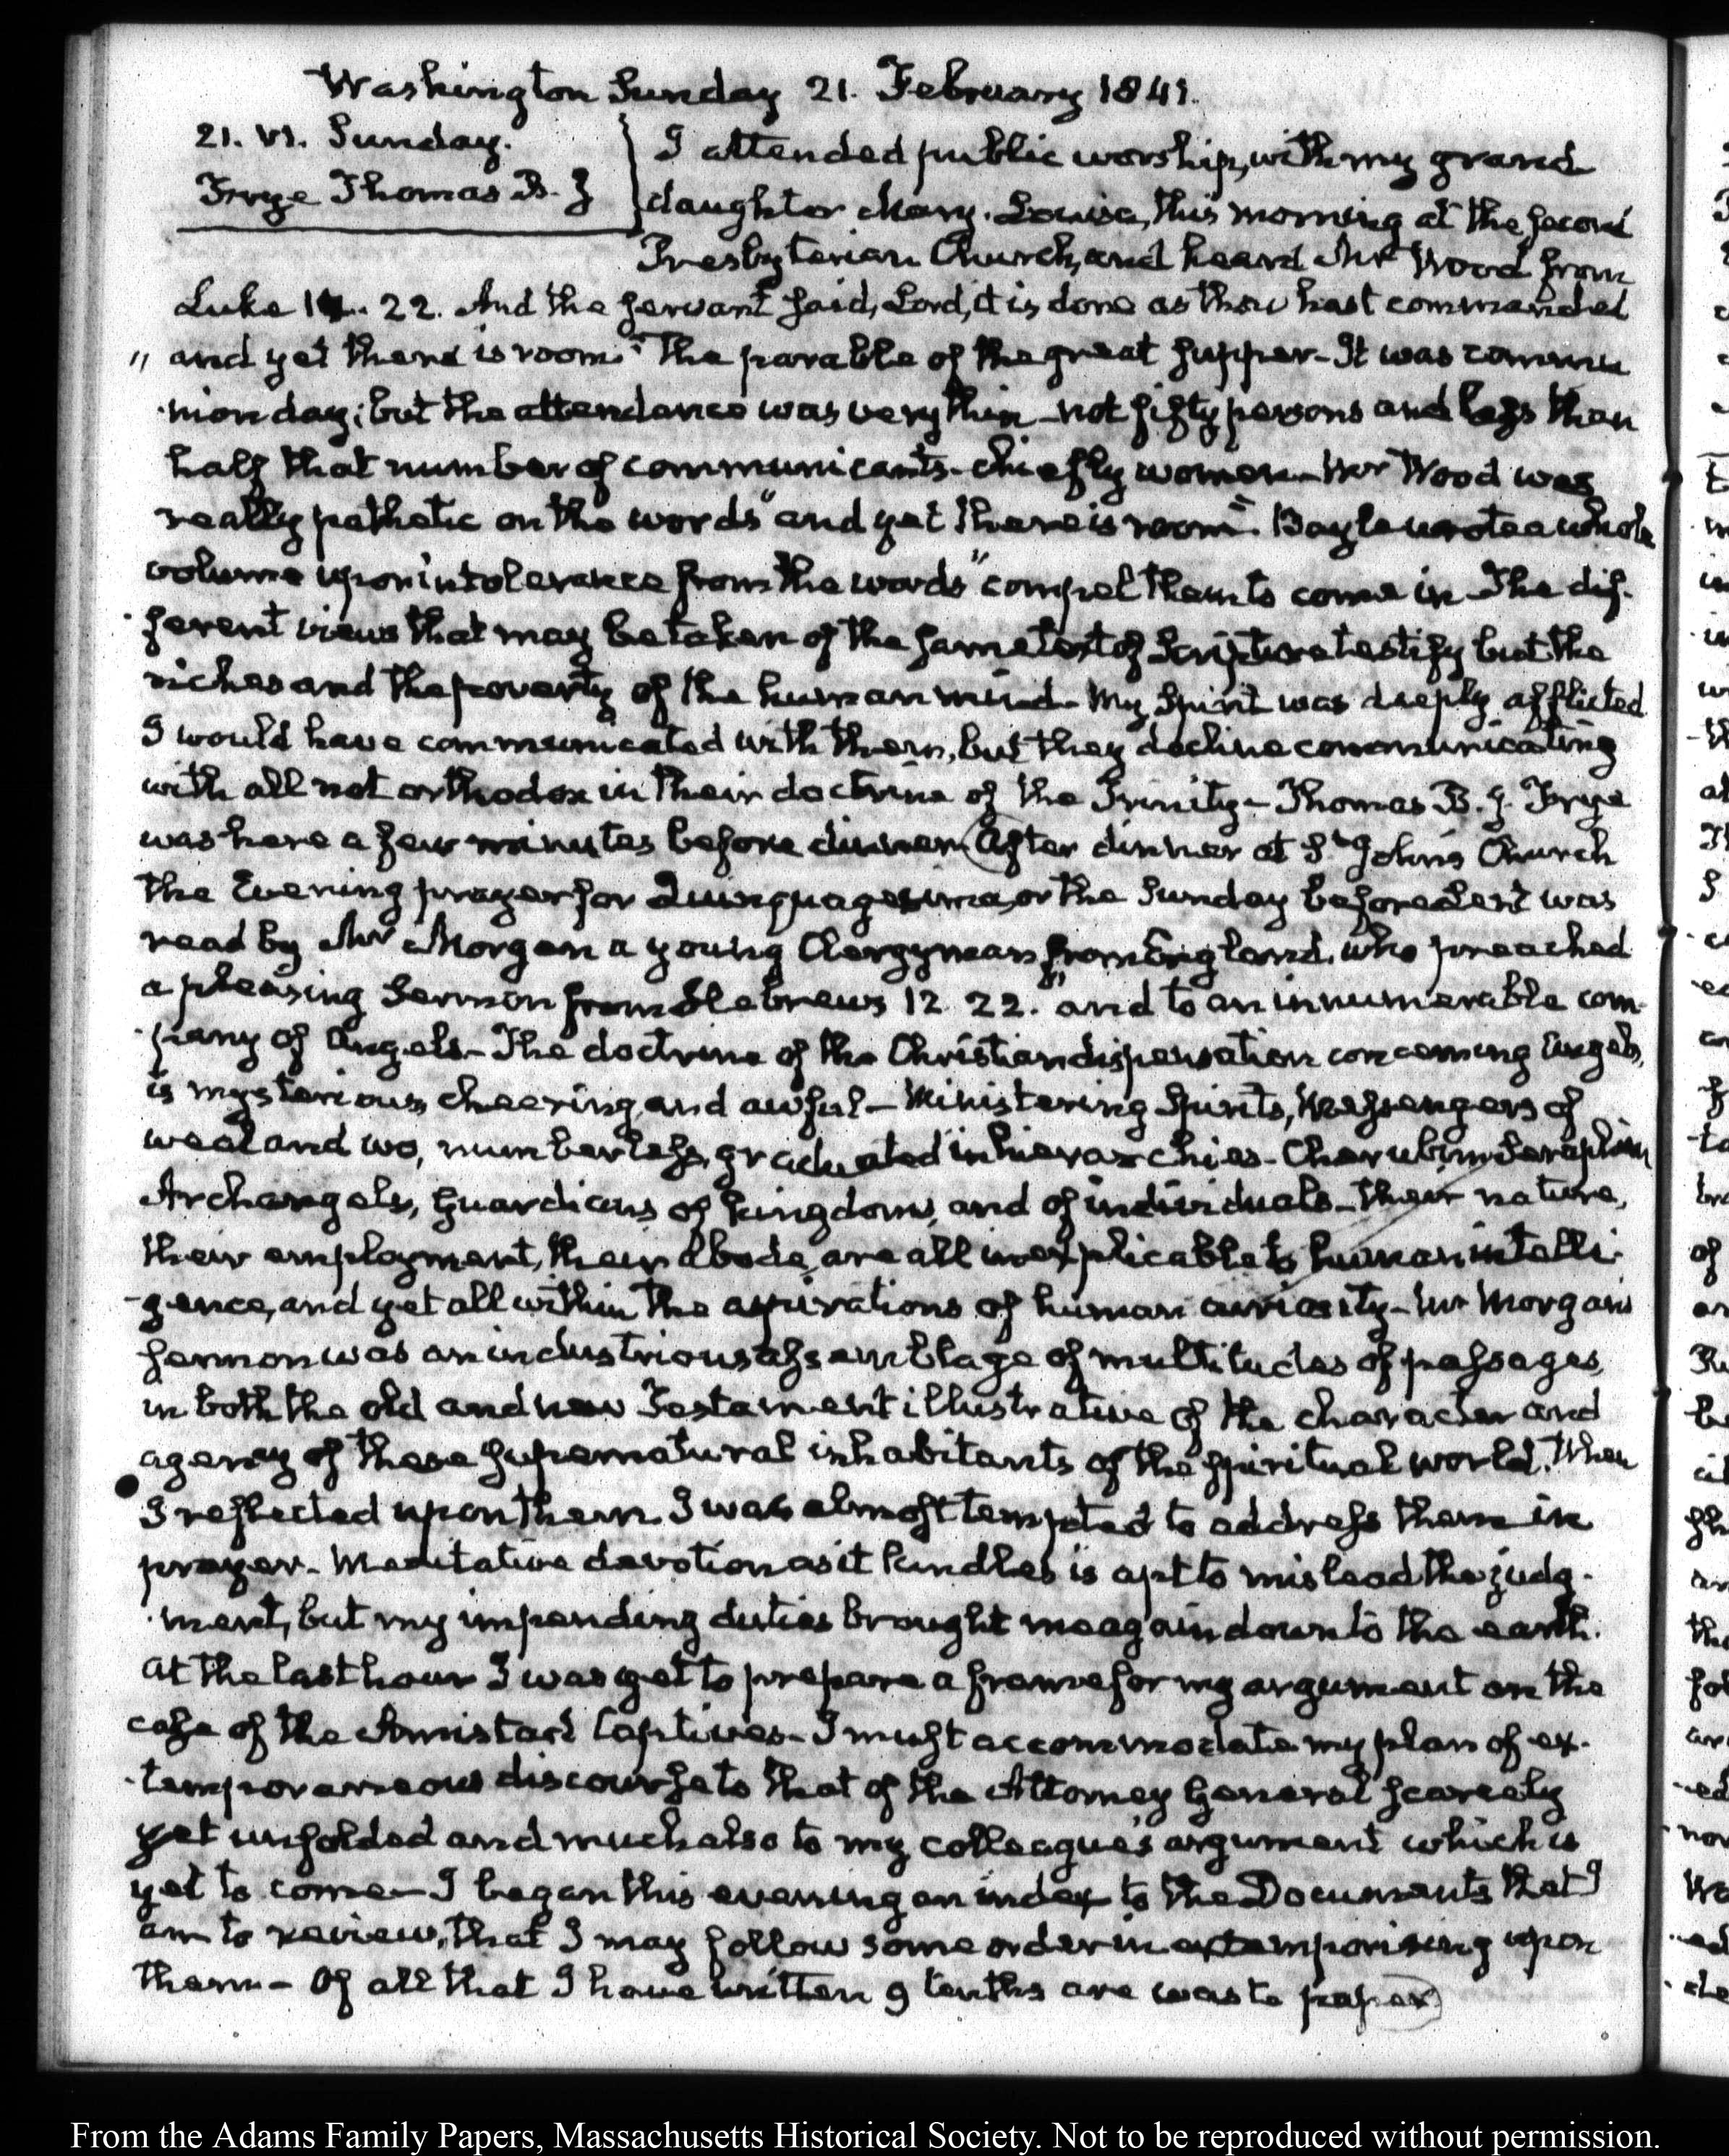 Washington Sunday 21. February 1841.
21. VI. Sunday.
Frye Thomas B. J
I attended public worship, with my grand
daughter Mary Louisa, this morning at the second
Presbyterian Church, and heard Mr Wood from
Luke 14. 22. And the servant said, Lord, it is done as thou hast commanded
" and yet there is room." The parable of the great supper - It was commu
nion day; but the attendance was very thin - not fifty persons and less than
half that number of communicants - chiefly women - Mr Wood was
really pathetic on the words "and yet there is room". Bayle wrote a whole
volume upon intolerance from the words "compel them to come in - The dif-
ferent views that may be taken of the same text of Scripture testify but the
riches and the poverty of the human mind - My Spirit was deeply afflicted
I would have communicated with them, but they decline communicating
with all not orthodox in their doctrine of the Trinity - Thomas B. J. Frye
was here a few minutes before dinner. After dinner at St. John's Church
the Evening prayer for Quinquagesima, or the Sunday before Lent was
read by Mr Morgan a young Clergyman from England, who preached
a pleasing Sermon from Hebrews 12. 22. "and to an innumerable com-
pany of Angels - The doctrine of the Christian dispensation concerning Angels,
is mysterious, cheering, and awful - Ministering Spirits, Messengers of
weal and wo, numberless, graduated in hierarchies - Cherubim Seraphim
Archangels, Guardians of Kingdoms, and of individuals - their nature,
their employment, their abode, are all inexplicable to human intelli-
gence, and yet all within the aspirations of human curiosity - Mr Morgan's
sermon was an industrious assemblage of multitudes of passages,
in both the old and new Testament illustrative of the character and
agency of these supernatural inhabitants of the spiritual world. When
I reflected upon them. I was almost tempted to address them in
prayer - Meditative devotion as it kindles is apt to mislead the judg-
ment, but my impending duties brought me again down to the earth.
At the last hour I was yet to prepare a frame for my argument on the
case of the Amistad Captives - I must accommodate my plan of ex-
temporaneous discourse to that of the Attorney General scarcely
yet unfolded and much also to my colleague's argument which is
yet to come - I began this evening an index to the Documents that I
am to review, that I may follow some order in extemporising upon
them - Of all that I have written 9 tenths are waste paper
From the Adams Family Papers, Massachusetts Historical Society. Not to be reproduced without permission.